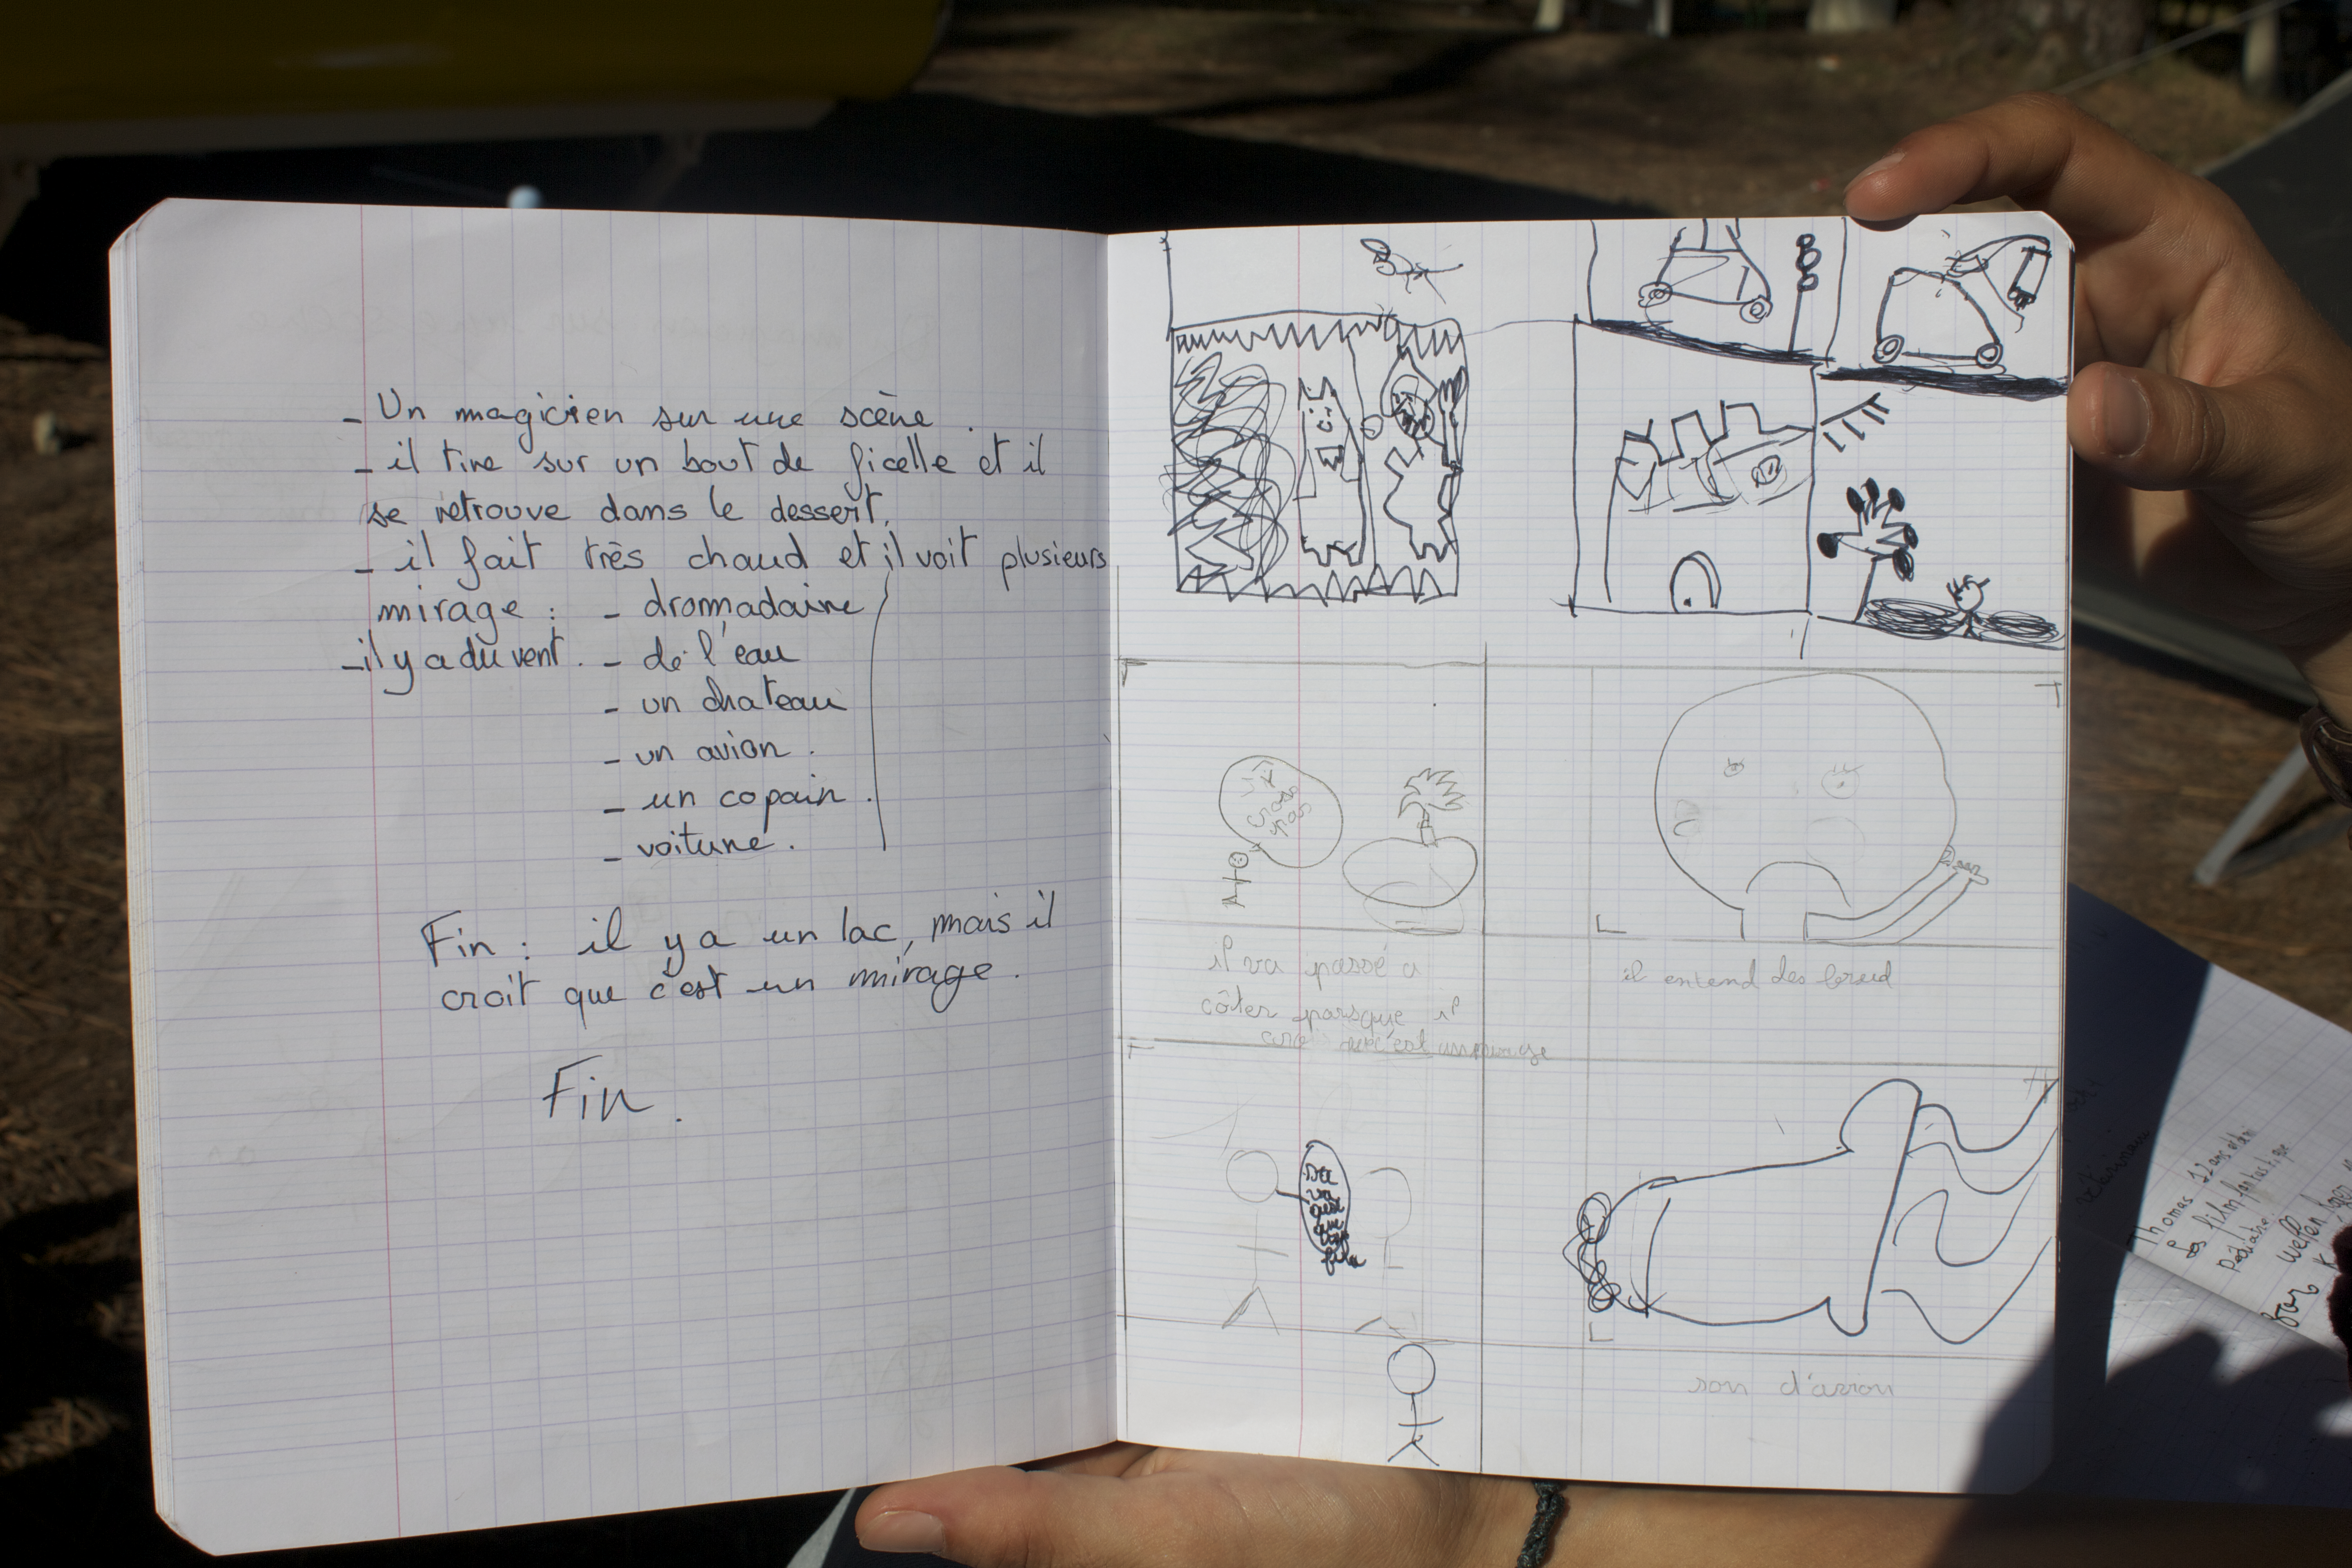 - Un magicien sur une scène.
- il tire sur un bout de ficelle et il
se retrouve dans le dessert.
- il fait très chaud et il voit plusieurs
mirage : - drommadaire
- il y a du vent. - de l'eau
- un chateau
- un avion.
- un copain.
- voiture.
Fin : il y a un lac, mais il
croit que c'est un mirage.
Fin.
il va passé a
côter parsque il
il entend des
son d'avion
Thomas 12 ans